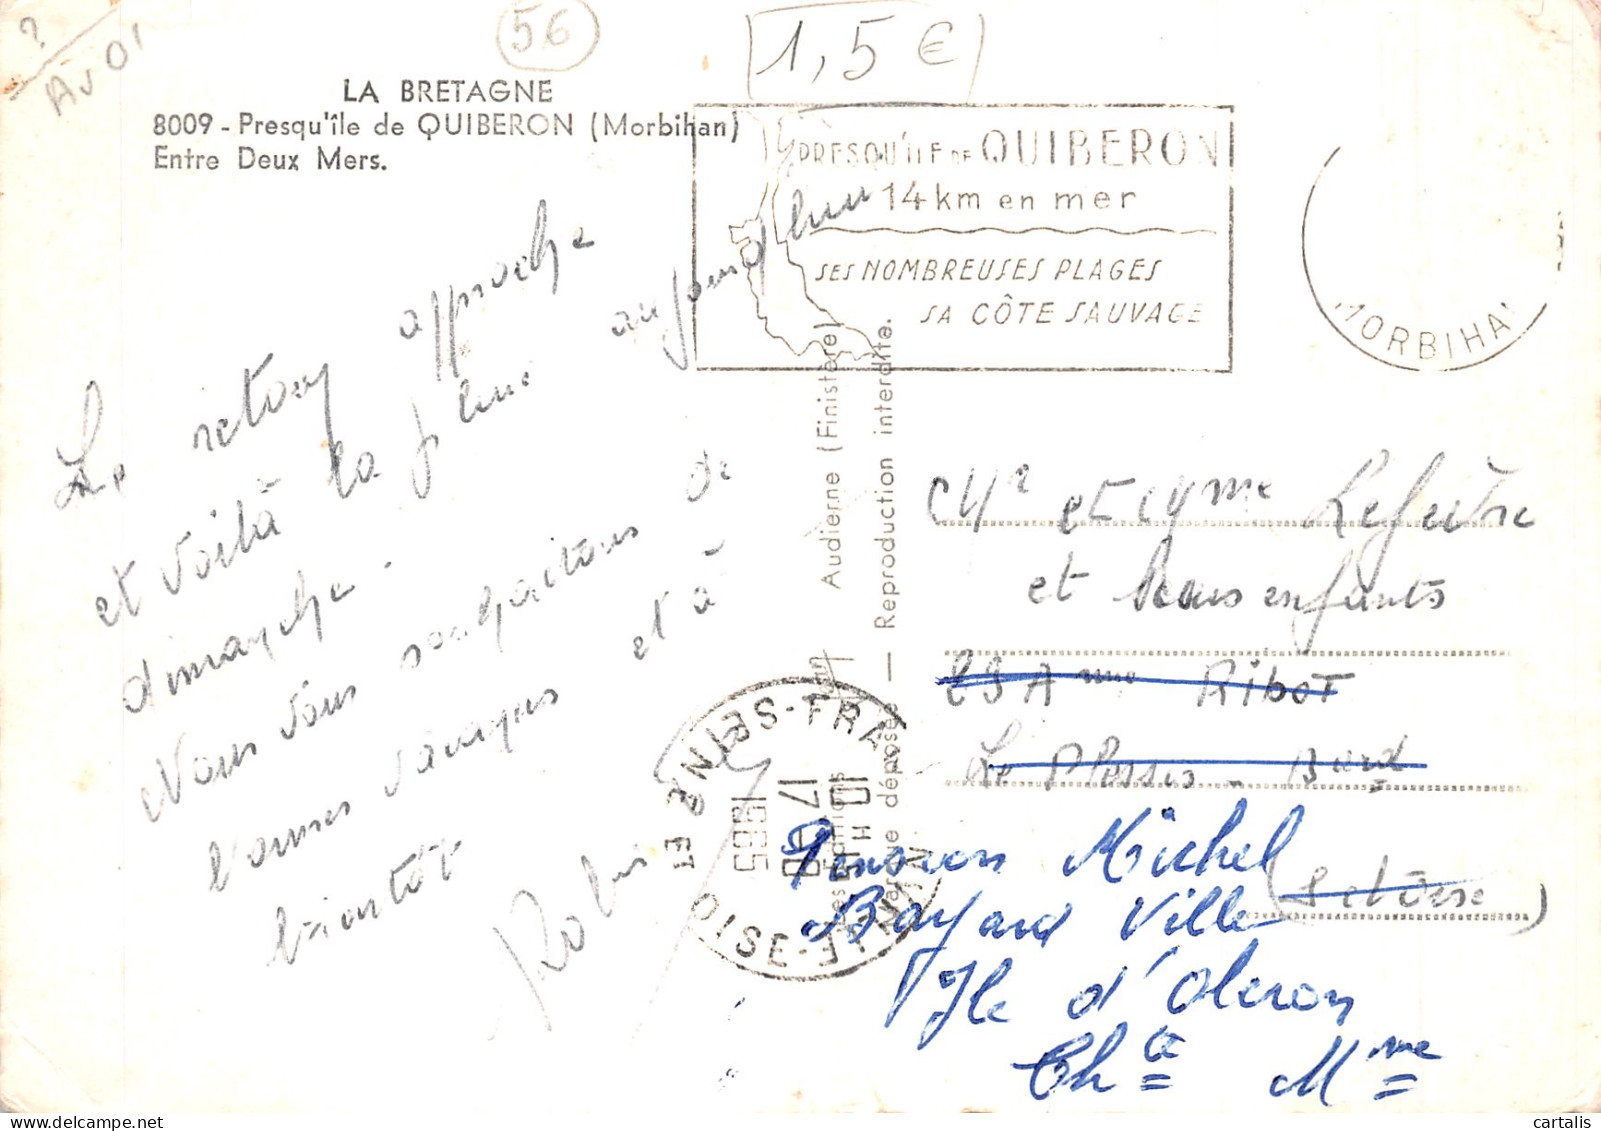 ?
Av 01
56
1,5€
LA BRETAGNE
8009 - Presqu'île de QUIBERON (Morbihan)
Entre Deux Mers.
PRESQU'ILE DE QUIBERON
14 km en mer
SES NOMBREUSES PLAGES
SA CÔTE SAUVAGE
MORBIHA
Le retour approche
et voilà la pluie aujourd'hui
dimanche.
Nous vous souhaitons de
bonnes vacances et à
bientôt
Audierne (Finistère)
déposé — Reproduction interdite.
10 H
17
1965
SEINE ET OISE
Mr et Mme Lefèvre
et leurs enfants
Ribot
Le Plessis - 
Pension Michel
Boyard Ville
Ile d'Oleron
Ch te Mme